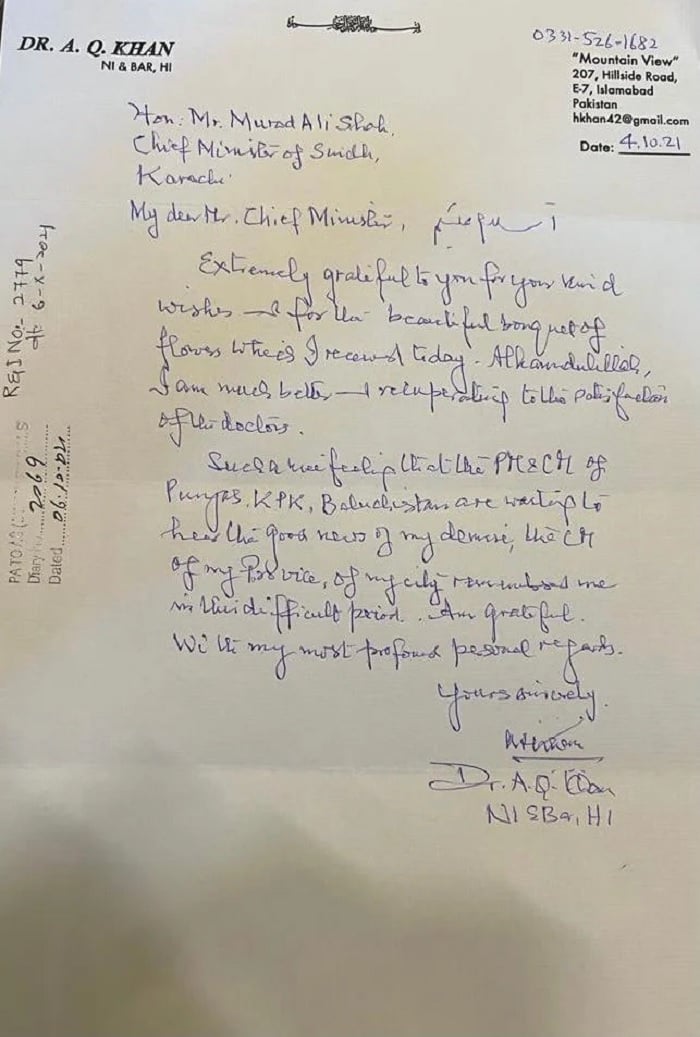 DR. A. Q. KHAN
NI & BAR, HI
0331-526-1682
"Mountain View"
207, Hillside Road,
E-7, Islamabad
Pakistan
hkhan42@gmail.com
Date: 4.10.21
Hon. Mr. Murad Ali Shah,
Chief Minister of Sindh,
Karachi.
My dear Mr. Chief Minister,
Extremely grateful to you for your kind
wishes & for the beautiful bouquet of
flowers which I received today. Alhamdulillah,
I am much better & recuperating to the satisfaction
of the doctors.
Such a nice feeling that the PM & CM of
Punjab, KPK, Baluchistan are waiting to
hear the good news of my demise, the CM
of my Province, of my city remembered me
in this difficult period. Am grateful.
With my most profound personal regards.
Yours sincerely.
Dr. A. Q. Khan
NI & Bar, HI
REG No:- 2779
dt: 6-X-2021
PATO
Diary No. 2069
Dated